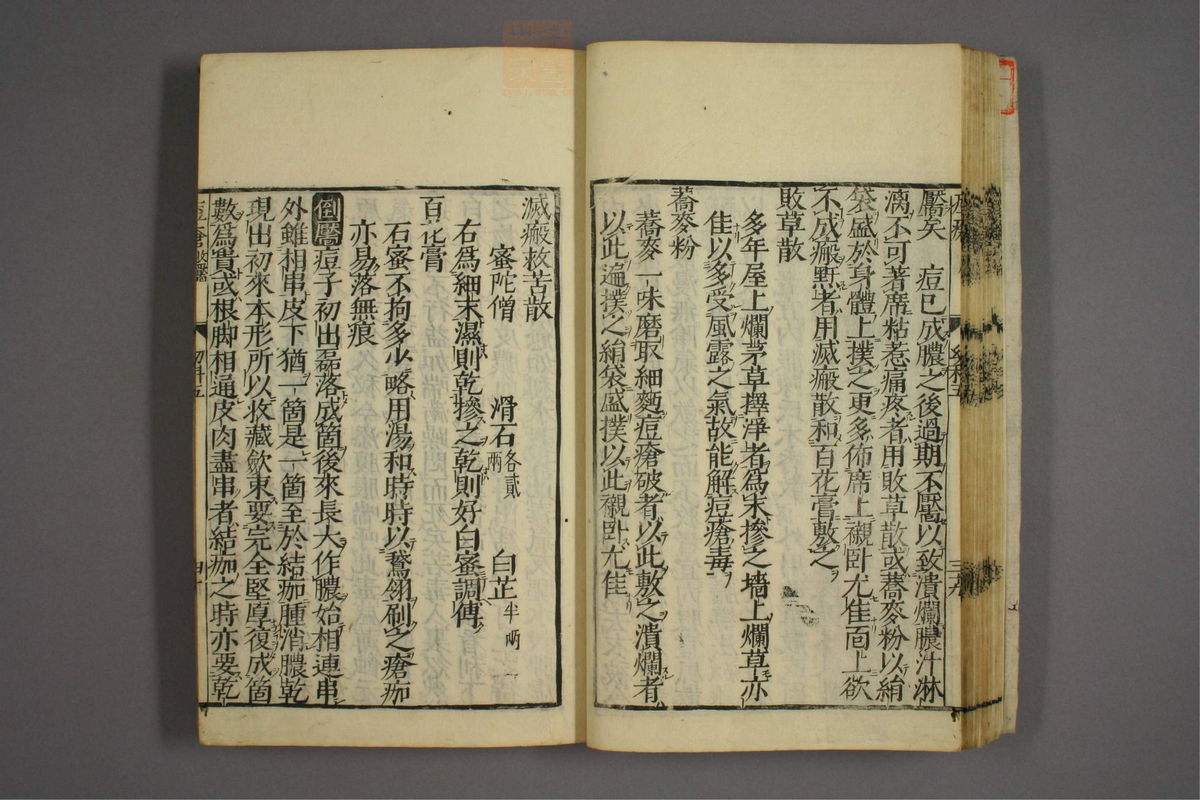 靨矣　痘已成膿之後過期不靨以致潰爛膿汁淋
漓不可著席粘惹痛疼者用敗草散或蕎麥粉以絹
袋盛於身體上撲之更多佈席上襯臥尤佳面上欲
不成瘢㸃者用滅瘢散和百花膏敷之
敗草散
多年屋上爛茅草擇淨者為末摻之墻上爛草亦
佳以多受風露之氣故能解痘瘡毒
蕎麥粉
蕎麥一味磨取細麪痘瘡破者以此敷之潰爛者
以此遍撲之絹袋盛撲以此襯臥尤佳
滅瘢救苦散
蜜陀僧　滑石各貳兩　白芷半兩
右為細末濕則乾摻之乾則好白蜜調傅
百花膏
石蜜不拘多少略用湯和時時以鵞翎刷之瘡痂
亦易落無痕
倒靨痘子初出磊落成箇後來長大作膿始相連串
外雖相串皮下猶一箇是一箇至於結痂腫消膿乾
現出初來本形所以收藏歛束要完全堅厚復成箇
數為貴或根脚相通皮肉盡串者結痂之時亦要乾